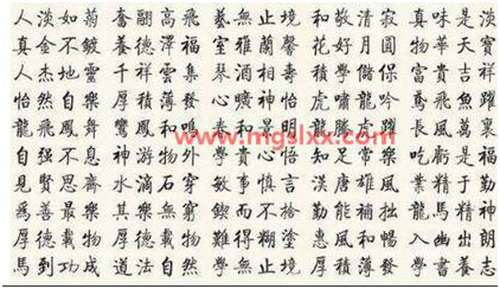 人淡如菊 奮翮高飛 藝無止境 和敬清寂 真味是淡
真金不鍍 養德澤福 室雅蘭馨 花好月圓 物華天寶
人杰地靈 千祥雲集 琴酒相壽 積學儲保 富貴吉祥
怡然自樂 厚積薄發 心曠神怡 虎嘯龍吟 鳶飛魚躍
龍飛鳳舞 鸞鳳和鳴 春和景明 龍騰虎躍 長風萬裏
www.mgslxx.com
自强不息 神游物外 學貴心悟 知足常樂 吃虧是福
見賢思齋 水滴石穿 敏事慎言 漢唐雄風 業精于勤
為善最樂 其樂無窮 鍥而不捨 勤能補拙 龍馬精神
厚德載物 厚德載物 難得糊塗 惠風和暢 入幽出朗
馬到功成 道法自然 學無止境 厚積薄發 學書養志